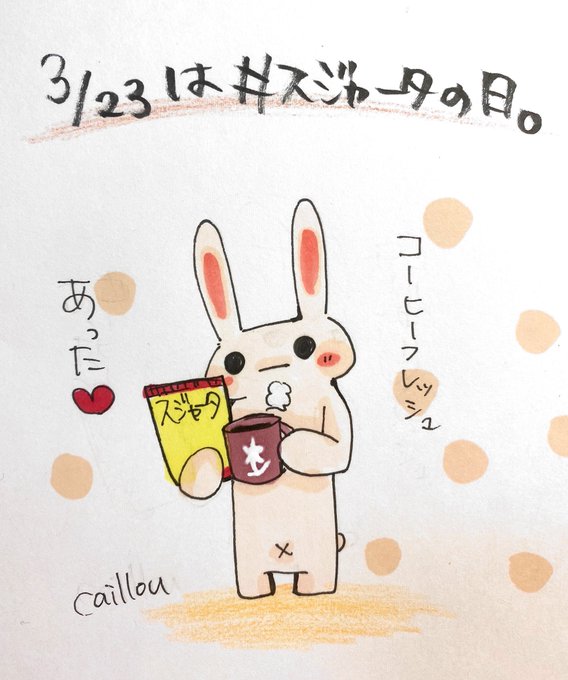 3/23は#スジャータの日。
コーヒーフレッシュ
あった
スジャータ
caillou